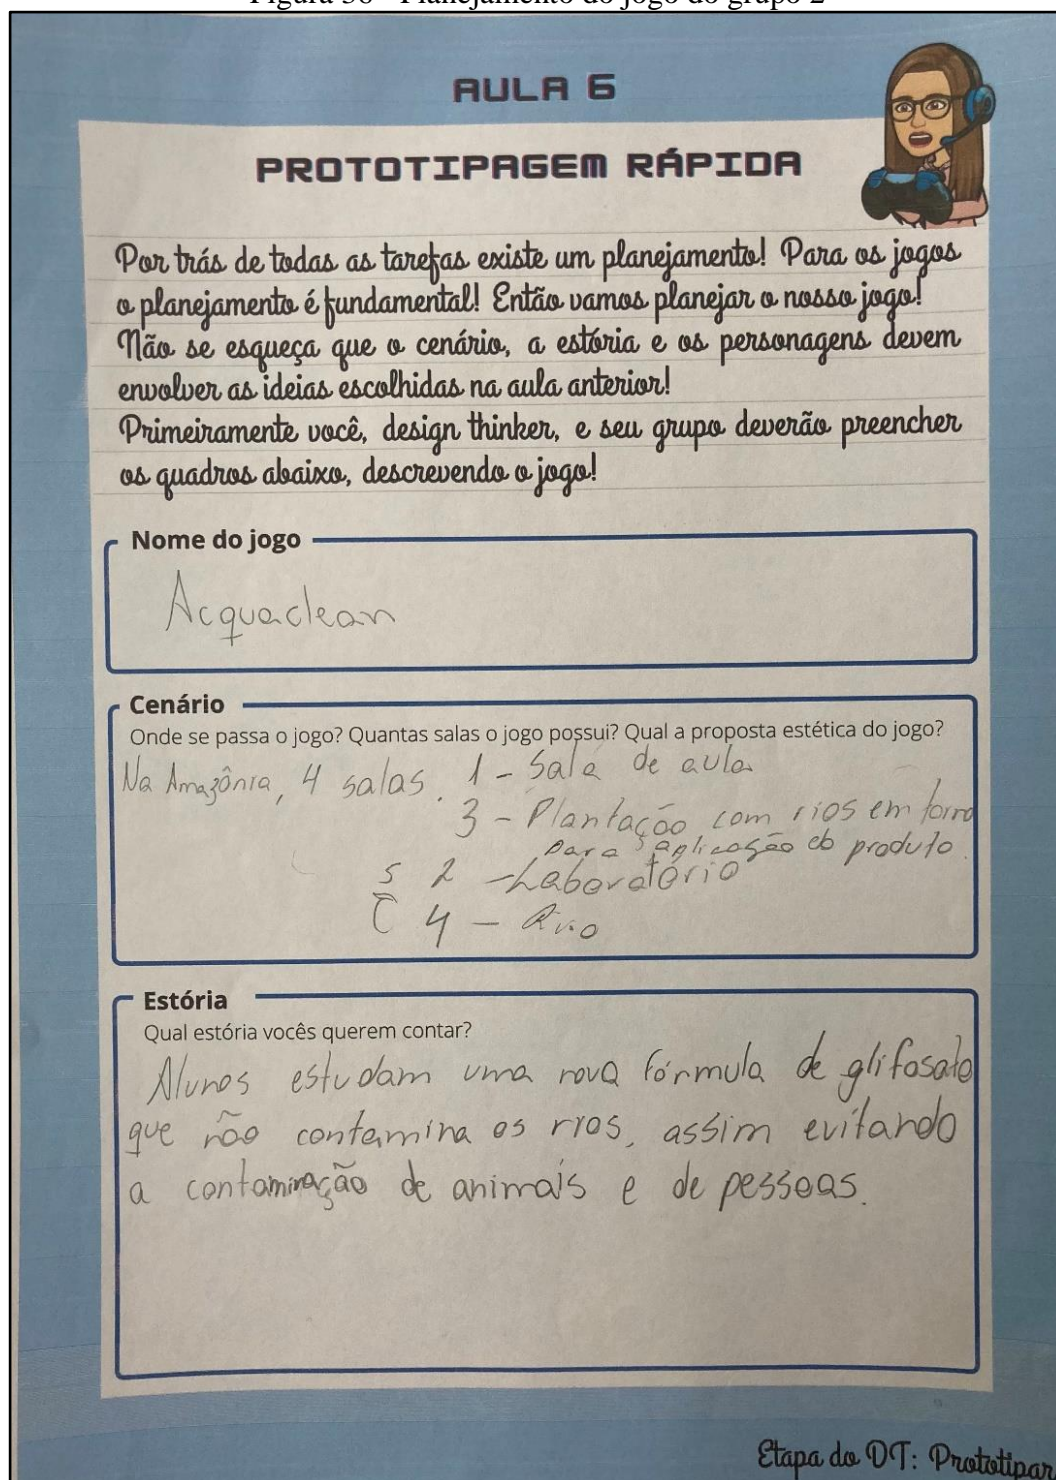 Figura 38 - Planejamento do jogo do grupo 2
AULA 6
PROTOTIPAGEM RÁPIDA
Por trás de todas as tarefas existe um planejamento! Para os jogos
o planejamento é fundamental! Então vamos planejar o nosso jogo!
Não se esqueça que o cenário, a estória e os personagens devem
envolver as ideias escolhidas na aula anterior!
Primeiramente você, design thinker, e seu grupo deverão preencher
os quadros abaixo, descrevendo o jogo!
Nome do jogo
Acquaclean
Cenário
Onde se passa o jogo? Quantas salas o jogo possui? Qual a proposta estética do jogo?
Na Amazônia, 4 salas. 1 - Sala de aula
3 - Plantação com rios em torno
para aplicação do produto.
2 - Laboratório
4 - Rio
Estória
Qual estória vocês querem contar?
Alunos estudam uma nova fórmula de glifosato
que não contamina os rios, assim evitando
a contaminação de animais e de pessoas.
Etapa do DT: Prototipar